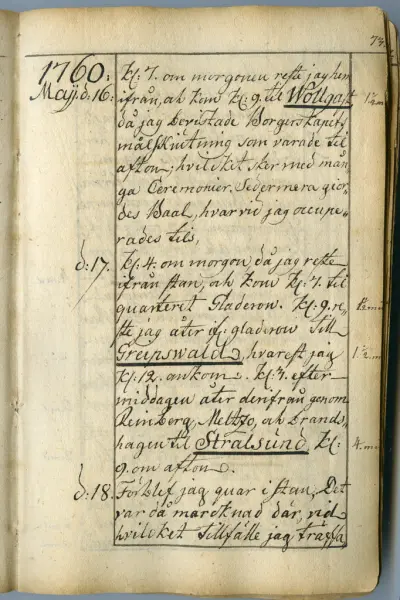 73.
1760: kl: 7. om morgonen reste jag hem
Maij: d: 16: ifrån, och kom kl: 9. til Wollgast 1½ m
då jag bevistade Borgerskapets
målskiutning som varade til
afton; hvilcket sker med mån
ga Ceremonier. Sedermera gior,,
des Baal, hvarvid jag occupe,,
rades tils,
d: 17. kl: 4. om morgon, då jag reste
ifrån stan, och kom kl: 7. til
quarteret Gladerow. kl: 9. re,,
ste jag åter if: gladerow till
Greipswald, hvarest jag 1½ m
kl: 12. ankom. kl: 3. efter
middagen åter dinfrån genom
Reinberg, Meltzo, och Brands,,
hagen til Stralsund, kl: 4. m
9. om afton.
d: 18. Förblef jag quar i stan, Det
var då marcknad där, vid
hvilcket Tillfälle jag träffa,,